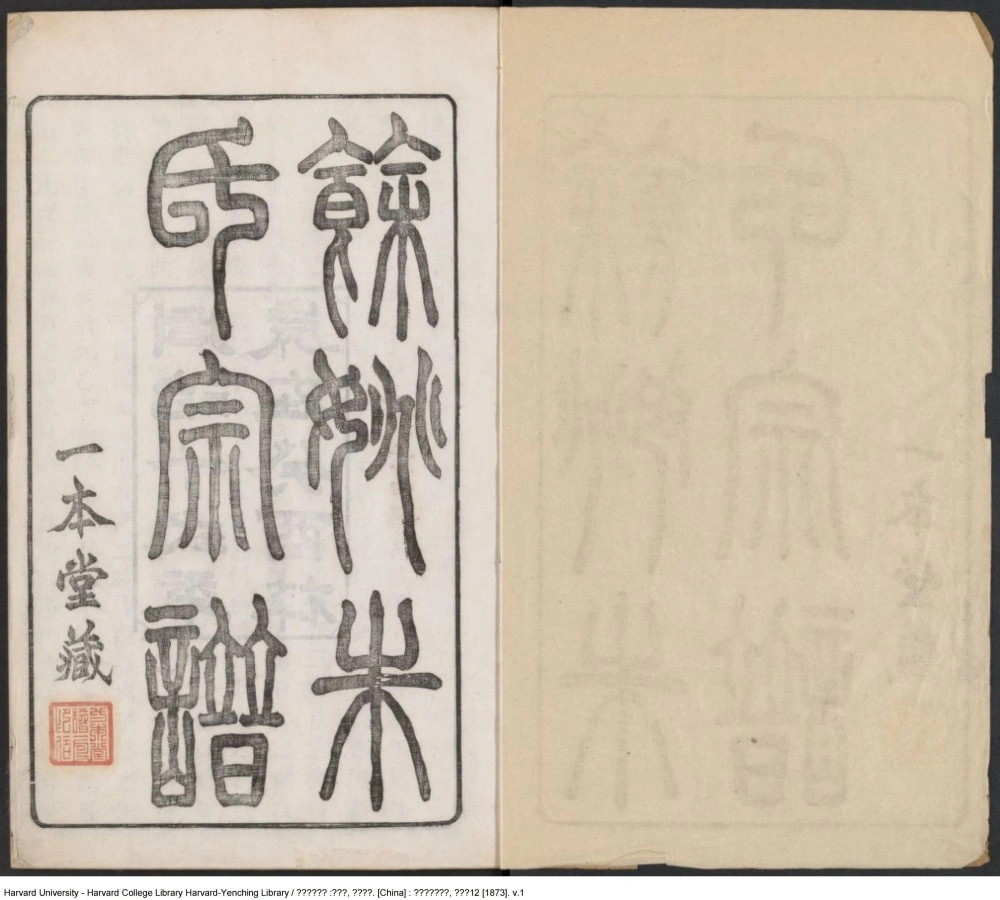 餘姚朱
氏宗譜
一本堂藏
Harvard University - Harvard College Library Harvard-Yenching Library / ?????? :???, ????. [China] : ???????, ???12 [1873]. v.1